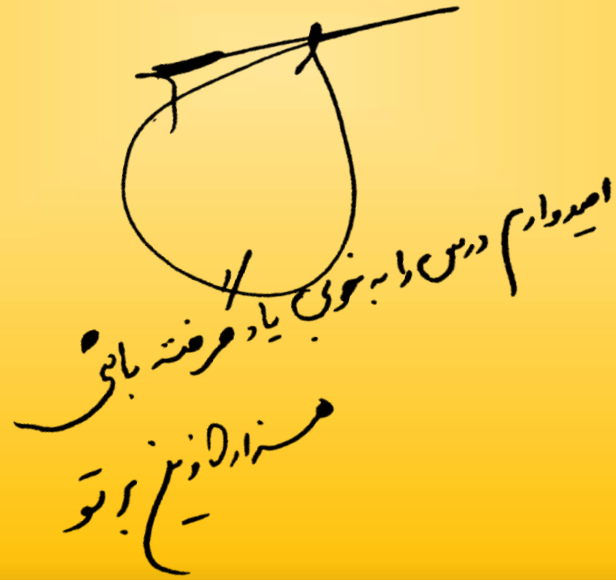 امیدوارم درس را به خوبی یاد گرفته باشی
هزار آفرین بر تو